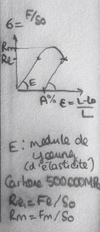 σ = F/So
Rm
Re
E
A%
ε = L-Lo/L
E : module de
young
(d'élasticité)
Carbone 500000MP
Re = Fe/So
Rm = Fm/So